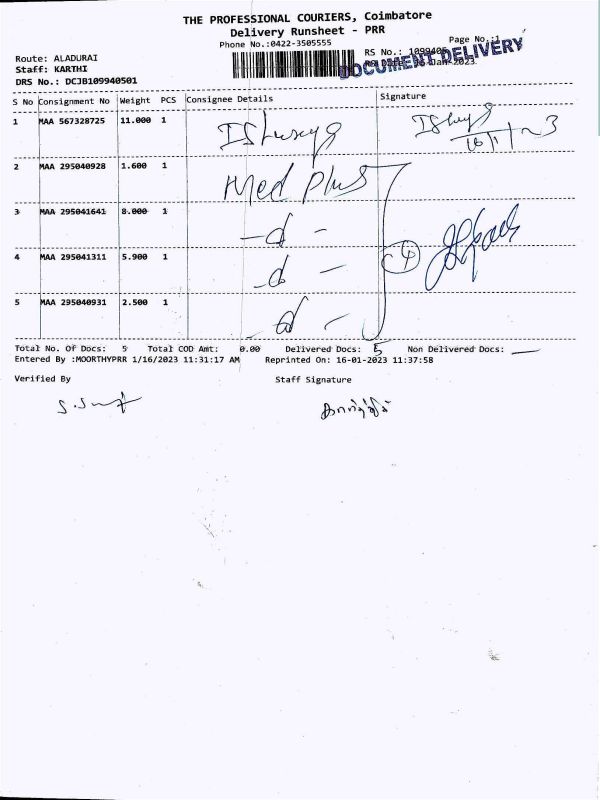 THE PROFESSIONAL COURIERS, Coimbatore
Delivery Runsheet - PRR
Phone No.:0422-3505555
Page No.:1
Route: ALADURAI
RS No.: 1099405
DOCUMENT DELIVERY
Staff: KARTHI
RS Date: 16-Jan-2023
DRS No.: DCJB109940501
S No Consignment No Weight PCS Consignee Details Signature
1 MAA 567328725 11.000 1
2 MAA 295040928 1.600 1 Med plus
3 MAA 295041641 8.000 1 -d-
4 MAA 295041311 5.900 1 -d- 4
5 MAA 295040931 2.500 1 -d-
Total No. Of Docs: 5 Total COD Amt: 0.00 Delivered Docs: 5 Non Delivered Docs: —
Entered By :MOORTHYPRR 1/16/2023 11:31:17 AM Reprinted On: 16-01-2023 11:37:58
Verified By Staff Signature